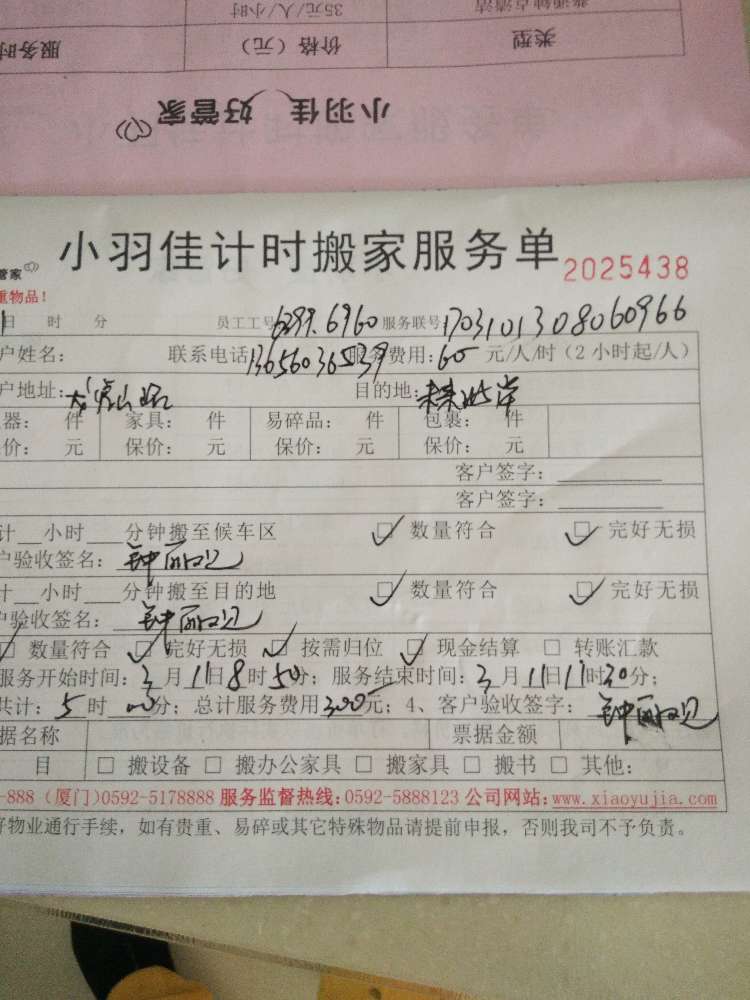 普通钟点清洁 35元/人/小时
类型 价格（元） 服务时
小羽佳 好管家
小羽佳计时搬家服务单 2025438
管家
重物品！
日 时 分 员工工号 6299.6960 服务联号 1703101308060966
户姓名： 联系电话 13656036539 服务费用：60 元/人/时（2小时起/人）
户地址：虎山路 目的地：未来海岸
器： 件 家具： 件 易碎品： 件 包裹： 件
价： 元 保价： 元 保价： 元 保价： 元
客户签字：
客户签字：
计__小时___分钟搬至候车区 ☑ 数量符合 ☑ 完好无损
户验收签名：
计__小时___分钟搬至目的地 ☑ 数量符合 ☑ 完好无损
户验收签名：
☑ 数量符合 ☑ 完好无损 ☑ 按需归位 ☑ 现金结算 □ 转账汇款
服务开始时间：3月11日8时50分；服务结束时间：3月11日11时20分；
共计：5时00分；总计服务费用300元；4、客户验收签字：
据名称 票据金额
目 □ 搬设备 □ 搬办公家具 □ 搬家具 □ 搬书 □ 其他：
-888（厦门）0592-5178888 服务监督热线：0592-5888123 公司网站：www.xiaoyujia.com
好物业通行手续，如有贵重、易碎或其它特殊物品请提前申报，否则我司不予负责。